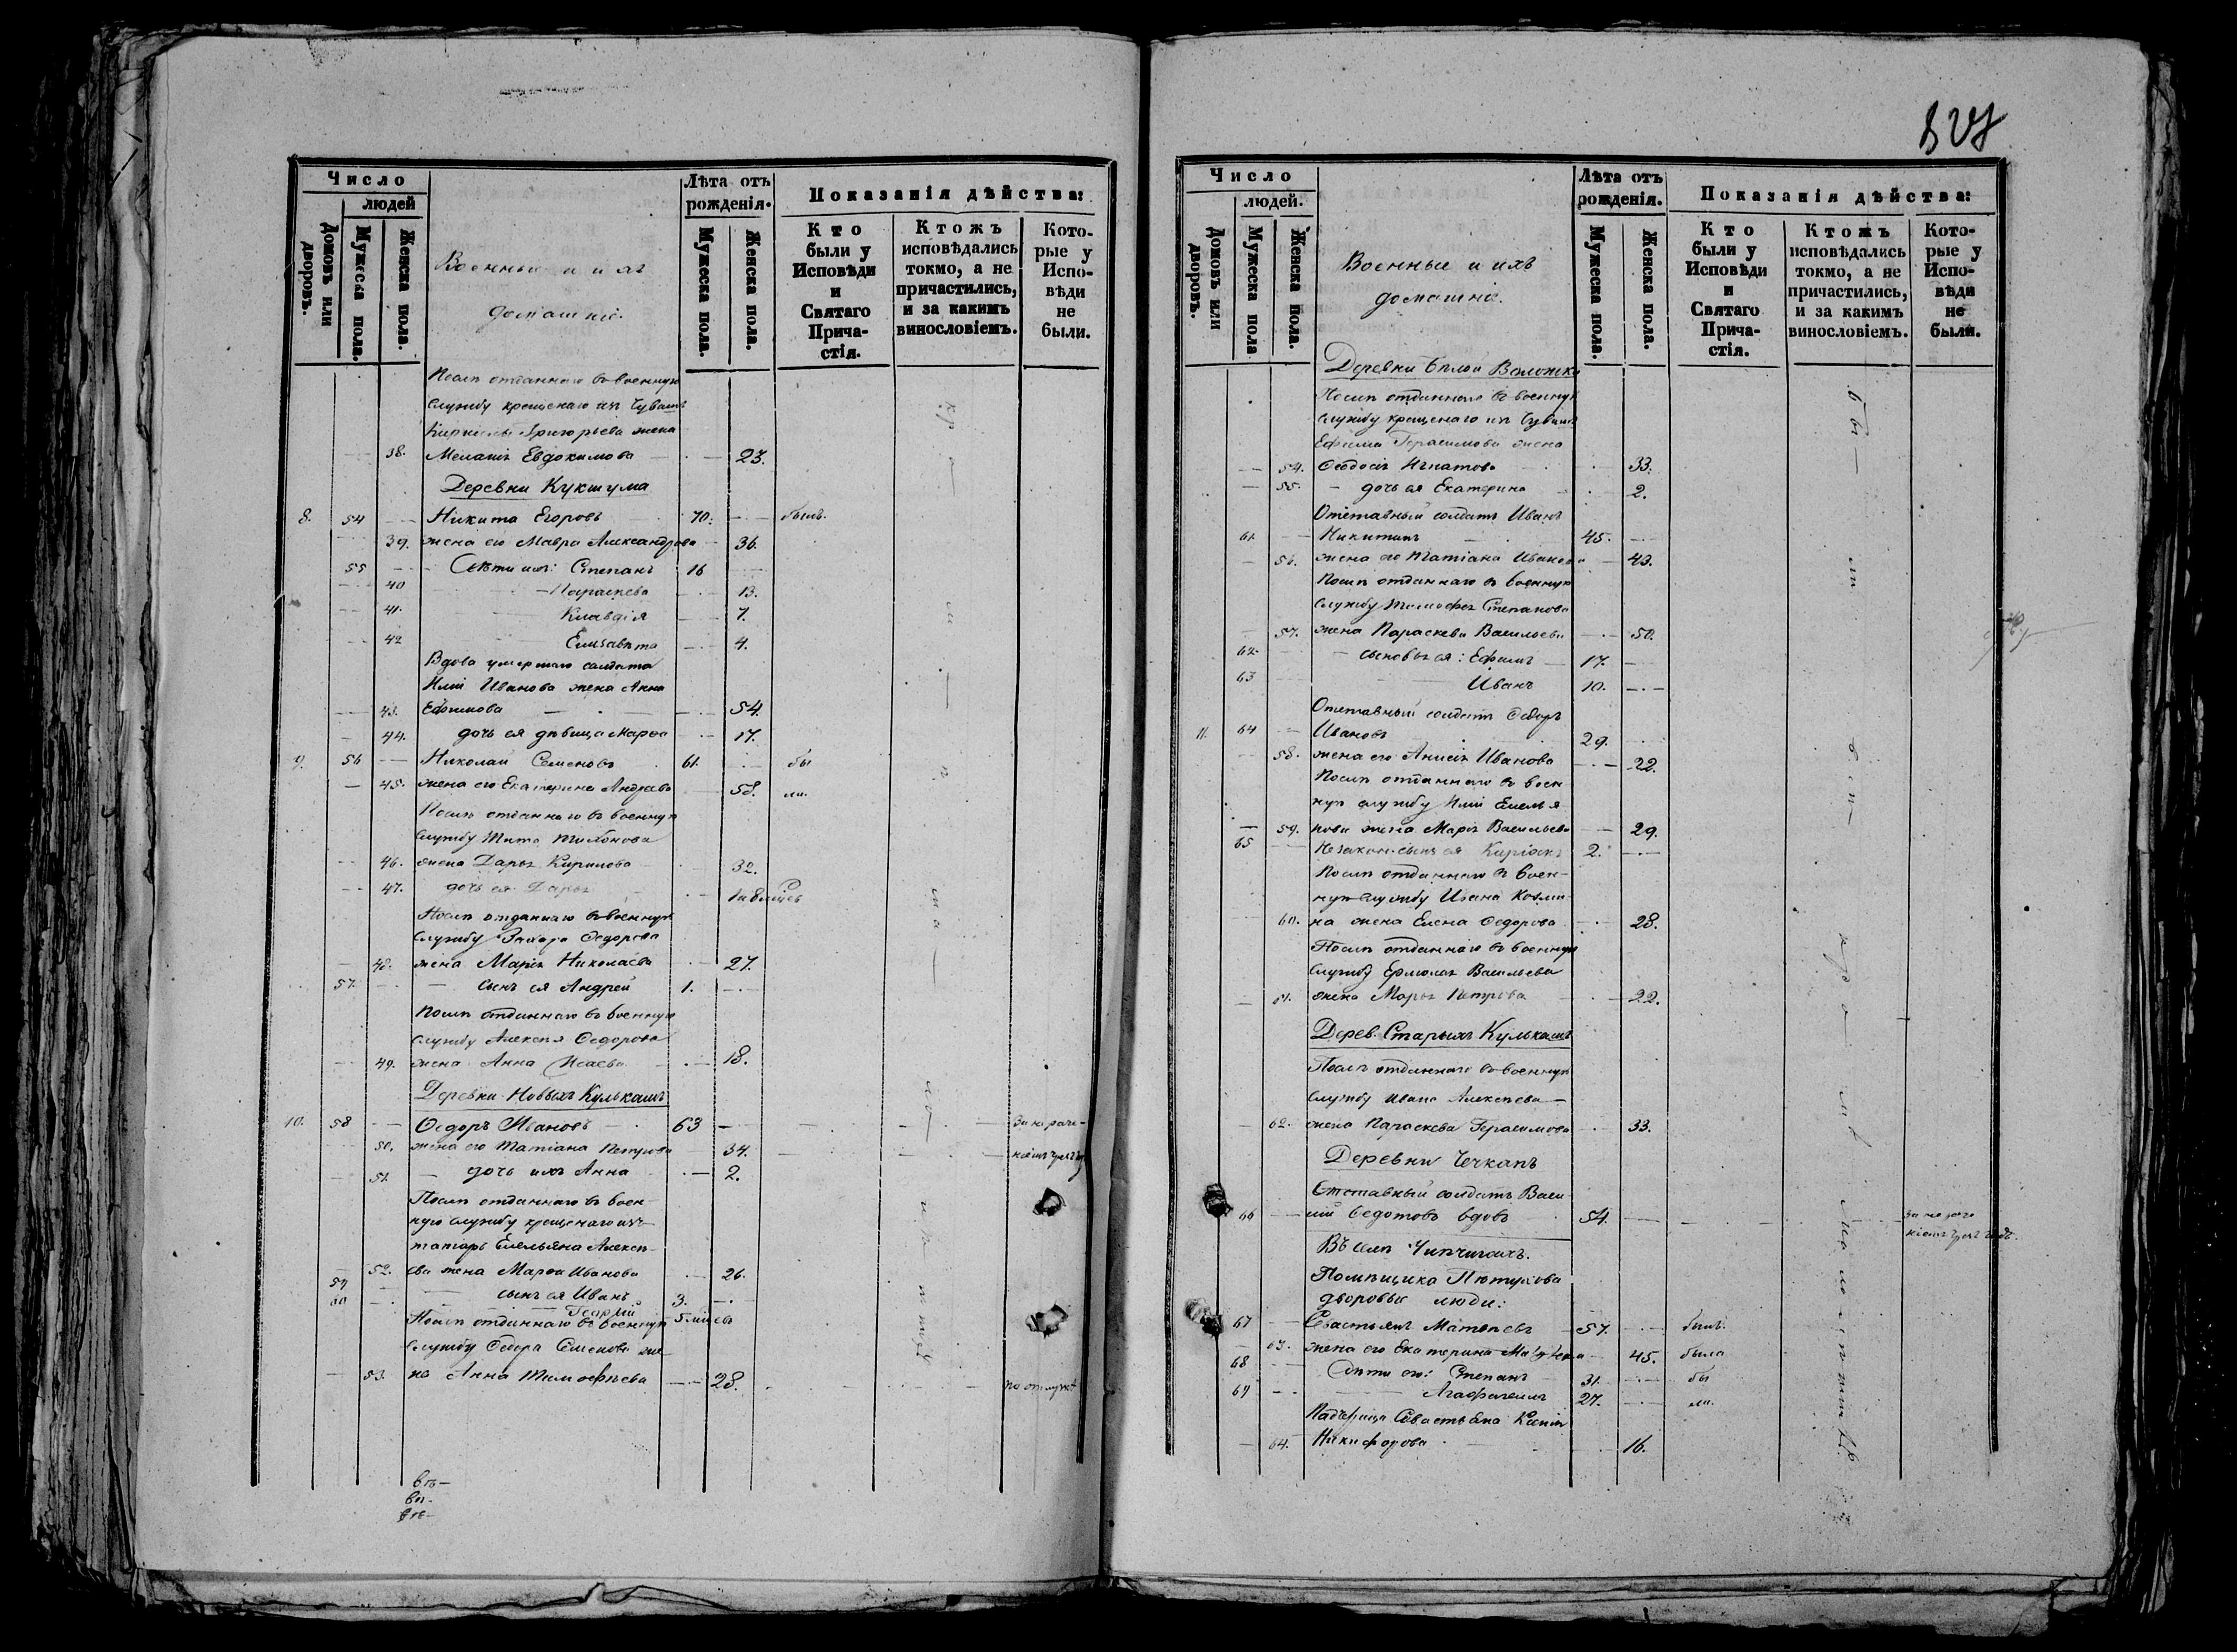 Число
людей
Домовъ или дворовъ.
Мужеска пола.
Женска пола.
Военные и ихъ
домашніе.
Лѣта отъ
рожденія.
Мужеска пола.
Женска пола.
Показанія дѣйства:
Кто
были у
Исповѣди
и
Святаго
Прича-
стія.
Ктожъ
исповѣдались
токмо, а не
причастились,
и за какимъ
винословіемъ.
Кото-
рые у
Испо-
вѣди
не
были.
Послѣ отданнаго въ военную
службу крещенаго изъ Чувашъ
Григорьева жена
38. Меланія Евдокимова 23.
Деревни Кукшума
8. 54 Никита Егоровъ 70. былъ.
39. жена его Мавра Александрова 36.
55 Дѣти ихъ: Степанъ 16
40 Параскева 13.
41. Клавдія 7.
42 Елисавета 4.
Вдова умершаго солдата
Иліи Иванова жена Анна
43. Ефимова 54.
44. дочь ея дѣвица Марѳа 17.
9. 56 Николай Семеновъ 61. бы
45. жена его Екатерина Андреева 58. ли.
Послѣ отданнаго въ военную
службу Тита Тихонова
46. жена Дарья Кирилова 32.
47. дочь ея Дарья
Послѣ отданнаго въ военную
службу Захара Ѳедорова
48. жена Марія Николаева 27.
57. сынъ ея Андрей 1.
Послѣ отданнаго въ военную
службу Алексѣя Ѳедорова
49. жена Анна Исаева 18.
Деревни Новыхъ Кулькашъ
10. 58 Ѳедоръ Ивановъ 63
50. жена его Татіана Петрова 34.
51. дочь ихъ Анна 2.
Послѣ отданнаго въ воен-
ную службу крещенаго изъ
татаръ Емельяна Алексѣ-
52. ева жена Марѳа Иванова 26.
59 сынъ ея Иванъ 3.
60 Георгій 5 мѣсяцъ
Послѣ отданнаго въ военную
службу Ѳедора Семенова же-
53. на Анна Тимофѣева 28. по отлучкѣ
въ-
въ-
въ-
527
Число
людей.
Домовъ или дворовъ.
Мужеска пола
Женска пола.
Военные и ихъ
домашніе.
Лѣта отъ
рожденія.
Мужеска пола.
Женска пола.
Показанія дѣйства:
Кто
были у
Исповѣди
и
Святаго
Прича-
стія.
Ктожъ
исповѣдались
токмо, а не
причастились,
и за какимъ
винословіемъ.
Кото-
рые у
Испо-
вѣди
не
были.
Деревни Бѣлой Воложки
Послѣ отданнаго въ военную
службу крещенаго изъ Чувашъ
Ефима Герасимова жена
54. Ѳеодосія Игнатова 33.
55. дочь ея Екатерина 2.
Отставный солдатъ Иванъ
61. Никитинъ 45.
56. жена его Татіана Иванова 43.
Послѣ отданнаго въ военную
службу Тимофея Степанова
57. жена Параскева Васильева 50.
62. сыновья ея: Ефимъ 17.
63 Иванъ 10.
Отставный солдатъ Ѳедоръ
11. 64 Ивановъ 29.
58. жена его Анисія Иванова 22.
Послѣ отданнаго въ воен-
ную службу Иліи Емелья
59. нова жена Марія Васильева 29.
65 Незакон. сынъ ея Киріакъ 2.
Послѣ отданнаго въ воен-
ную службу Ивана Козми-
60. на жена Елена Ѳедорова 28.
Послѣ отданнаго въ военную
службу Ермолая Васильева
61. жена Марья Петрова 22.
Дерев. Старыхъ Кулькашъ
Послѣ отданнаго въ военную
службу Ивана Алексѣева
62. жена Параскева Герасимова 33.
Деревни Чечкапъ
Отставный солдатъ Васи
66 лій Ѳедотовъ вдовъ 54.
Въ селѣ Чипчигахъ.
Помѣщика Пютухова
дворовые люди:
67 Севастьянъ Матвѣевъ 57. былъ.
63. жена его Екатерина 45. была
68 Дѣти его: Степанъ 31. бы
69 27. ли.
Падчерица Севастьяна Ксенія
64. Никифорова 16.